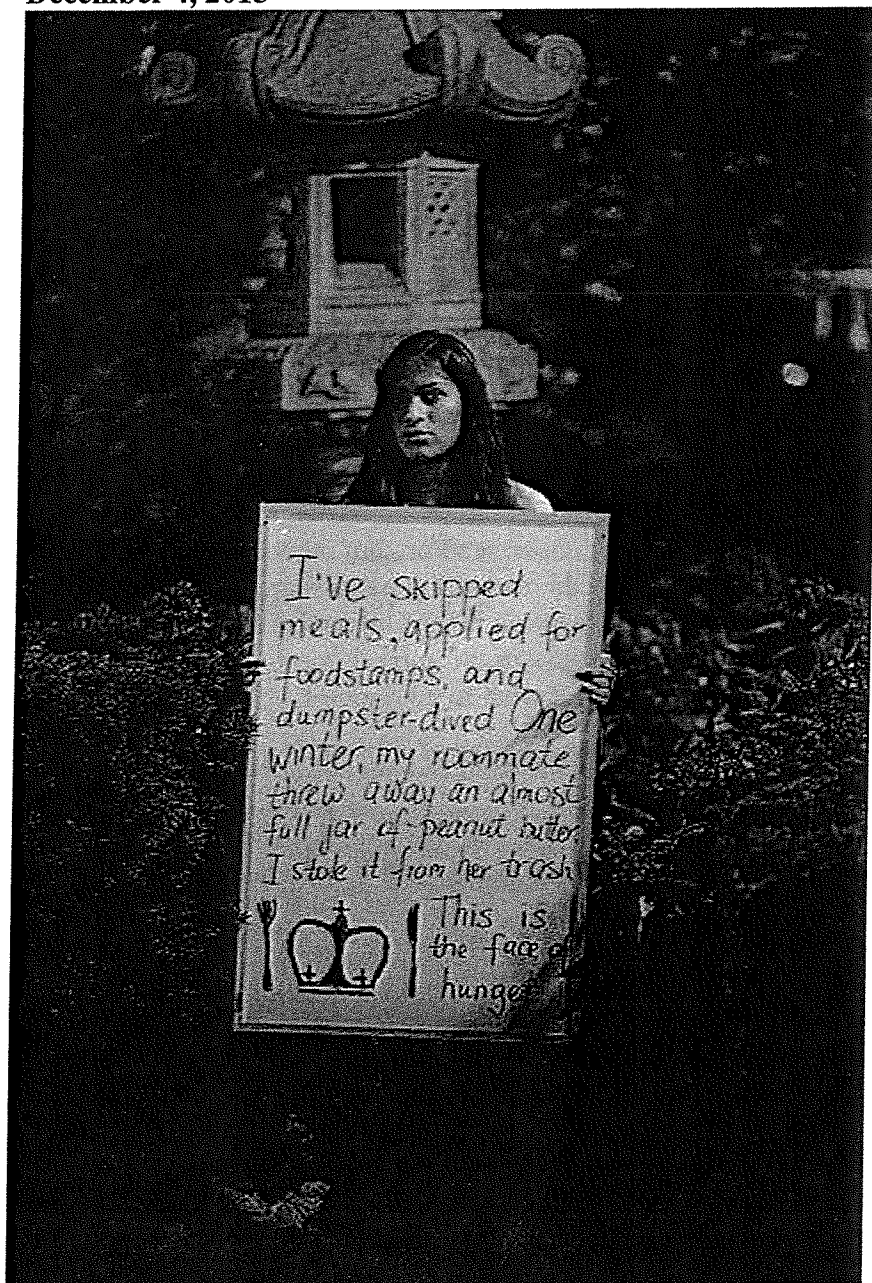 December 4, 2013
I've skipped
meals, applied for
foodstamps, and
dumpster-dived One
winter, my roommate
threw away an almost
full jar of peanut butter.
I stole it from her trash
This is
the face of
hunger